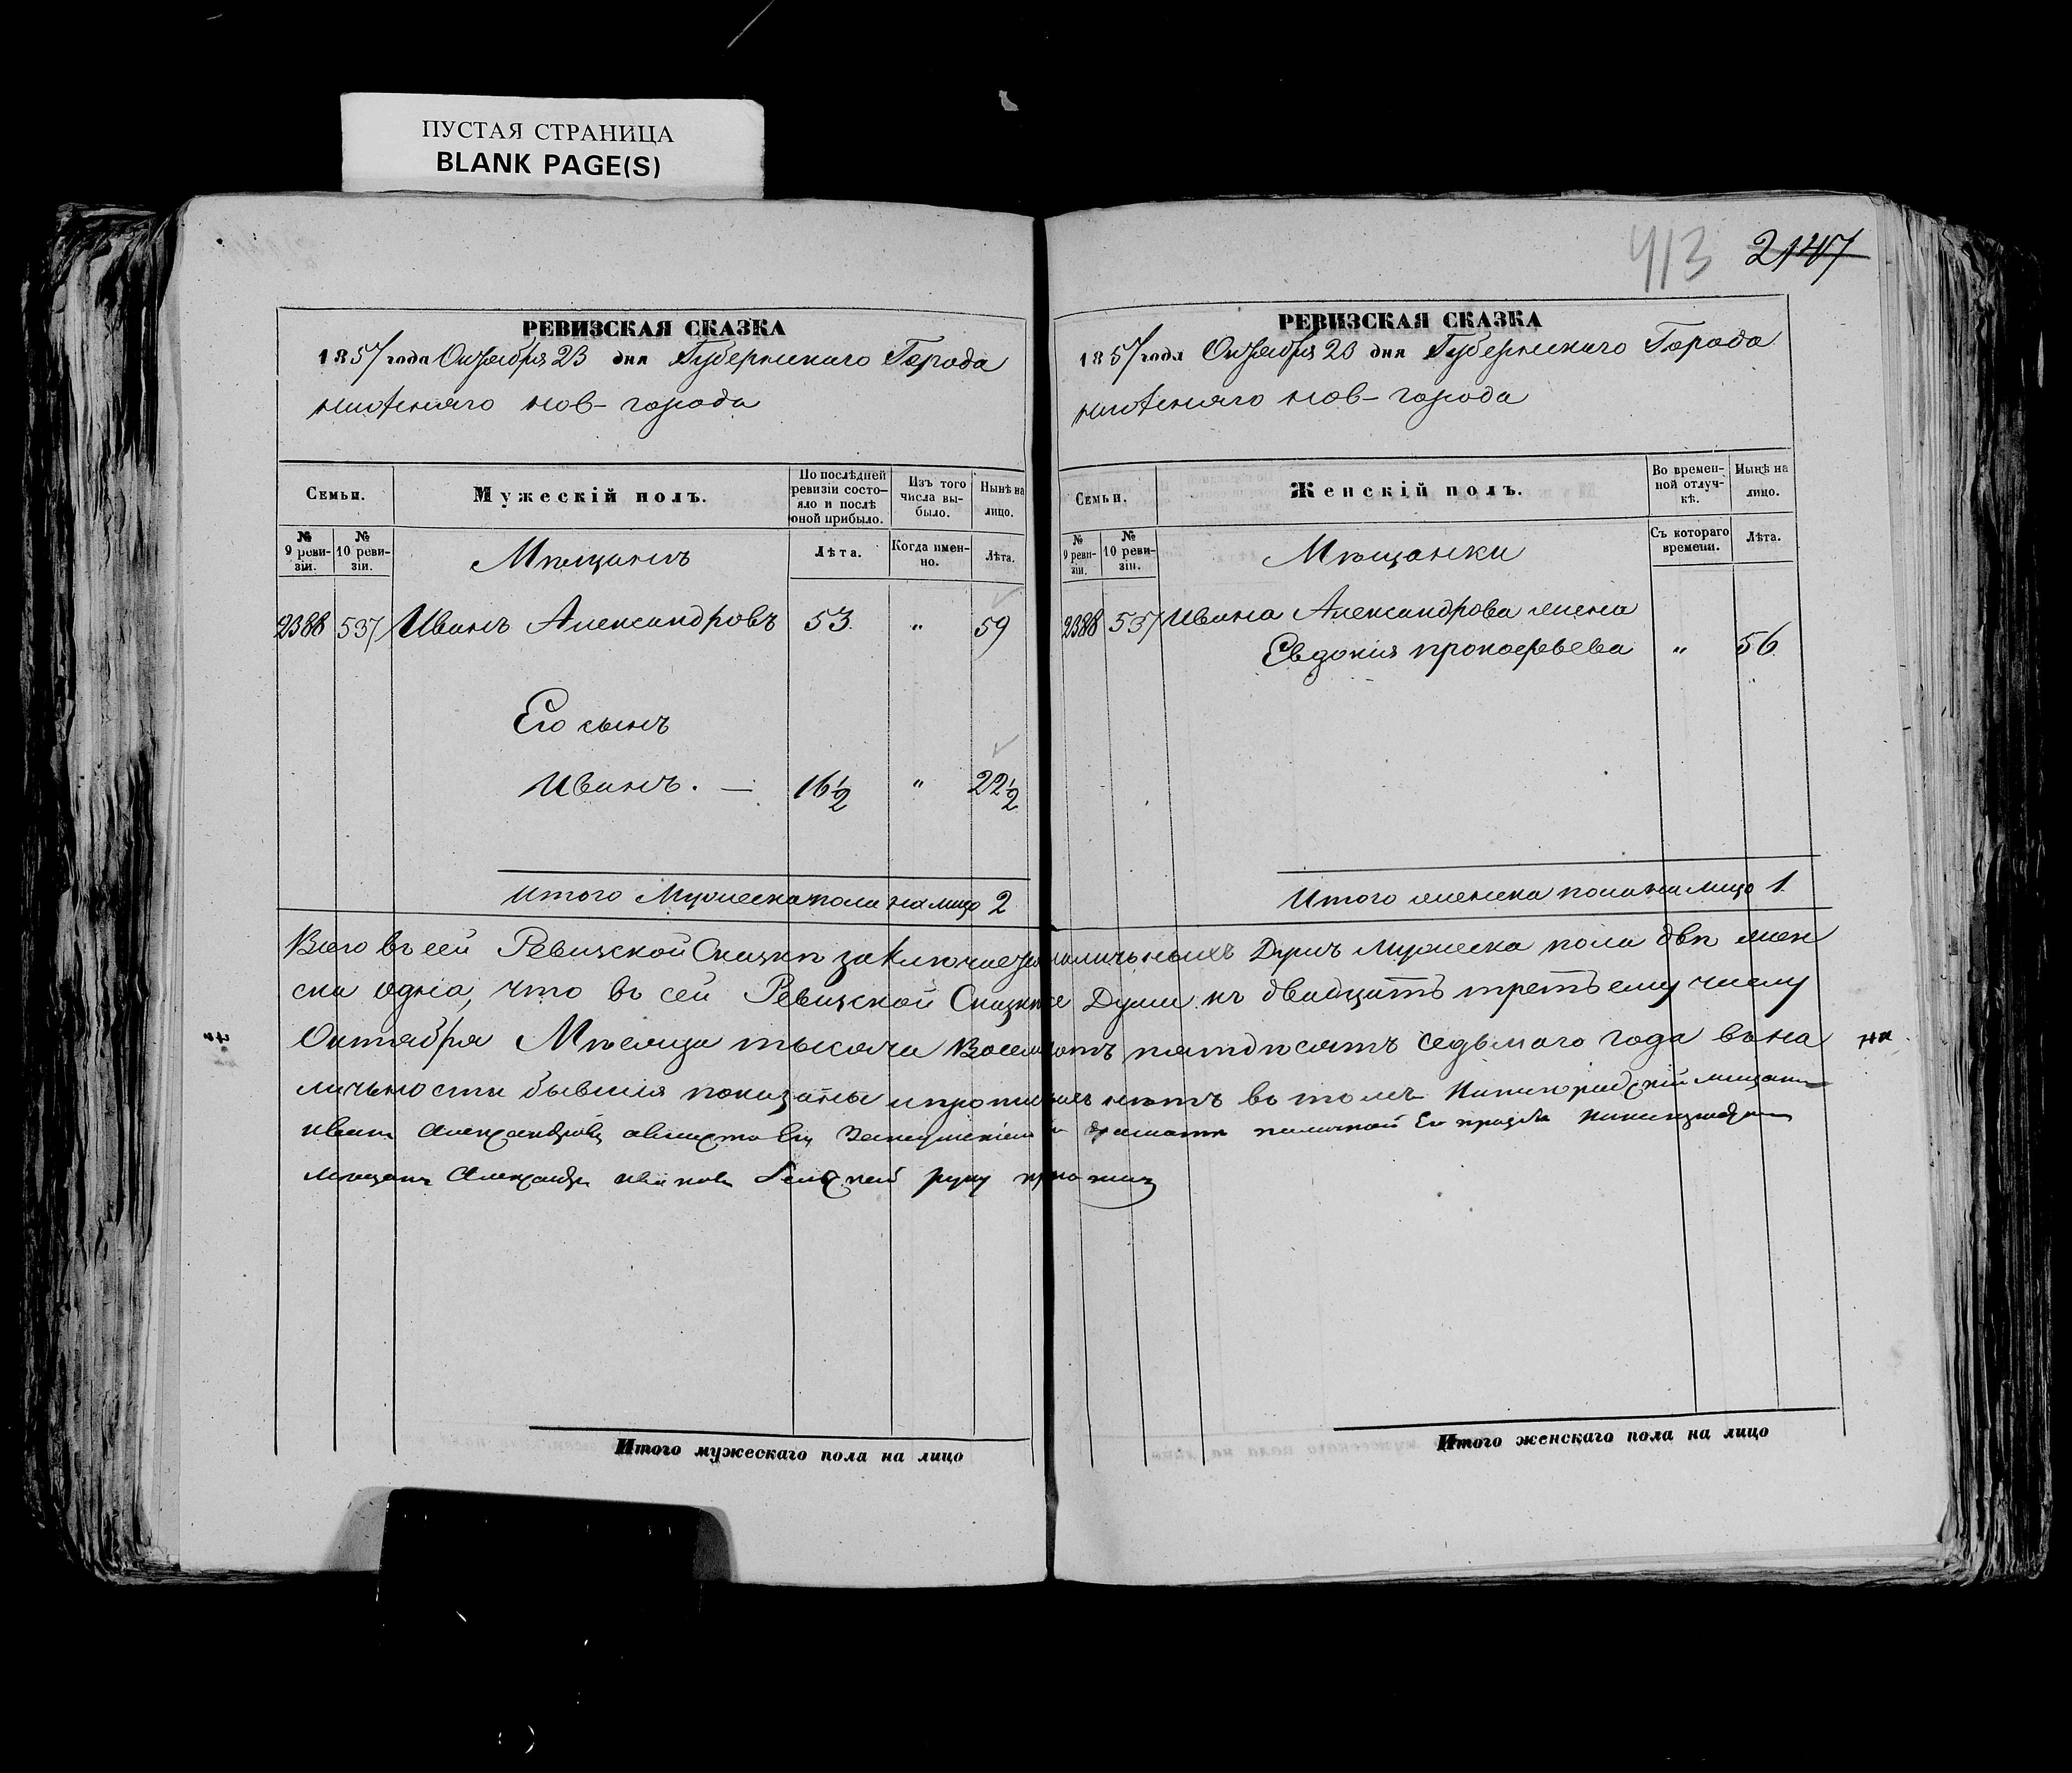 ПУСТАЯ СТРАНИЦА
BLANK PAGE(S)
413 2147
РЕВИЗСКАЯ СКАЗКА
1857 года Октября 23 дня Губернскаго Города
нижняго нов-города
Семьи.
Мужескій полъ.
По послѣдней ревизіи состо-
яло и послѣ
оной прибыло.
Изъ того
числа вы-
было.
Нынѣ на
лицо.
№
9 реви-
зіи.
№
10 реви-
зіи.
Мѣщанъ
Лѣта.
Когда имен-
но.
Лѣта.
2388 537 Иванъ Александровъ 53 " 59
Его сынъ
Иванъ. — 16½ " 22½
Итого Мужеска пола на лицо 2
РЕВИЗСКАЯ СКАЗКА
1857 года Октября 23 дня Губернскаго Города
нижняго нов-города
Семьи.
Женскій полъ.
Во времен-
ной отлуч-
кѣ.
Нынѣ на
лицо.
№
9 реви-
зіи.
№
10 реви-
зіи.
Мѣщанки
Съ котораго
времени.
Лѣта.
2388 537 Ивана Александрова жена
Евдокія прокофьева " 56
Итого женска пола на лицо 1
Всего въ сей Ревизской Сказкѣ заключается наличьныхъ Душъ Мужеска пола двѣ жен
ска одна, что въ сей Ревизской Сказкѣ Души къ двадцать третьему числу
Октября Мѣсяца тысяча Восемьсотъ пятдесятъ седьмаго года въ на
личьности бывшія показаны и прописныхъ нѣтъ въ томъ мещанинъ
иванъ Александровъ а вместо Его грамоте
мещанинъ Александръ ивановъ руку приложилъ
Итого мужескаго пола на лицо
Итого женскаго пола на лицо